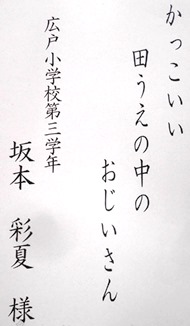 かっこいい
田うえの中の
おじいさん
広戸小学校第三学年
坂本 彩夏 様